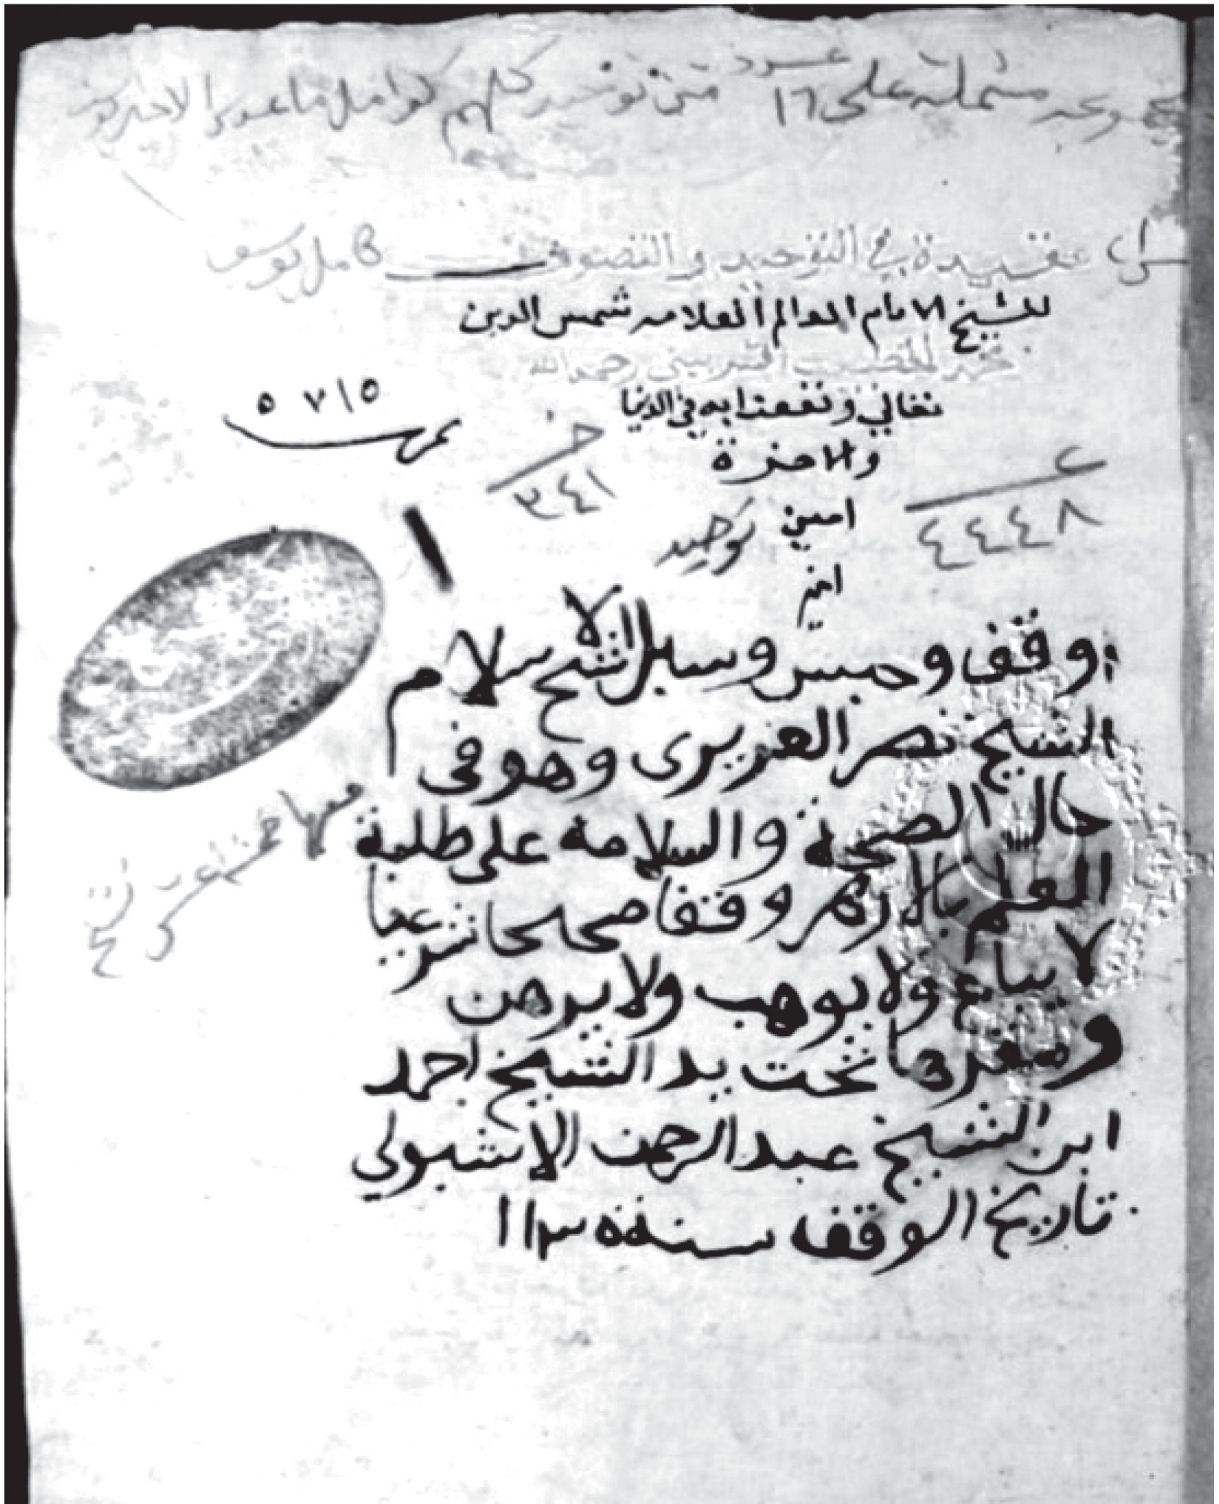 مشتملة على ١٦ متن توحيد كلهم كوامل ماعدى الاخير
عقيدة في التوحيد والتصوف
للشيخ الامام العالم العلامه شمس الدين
محمد الخطيب الشربيني رحمه الله
تعالي ونفعنا به في الدنيا
والاخرة
امين
امين
توحيد
٤٤٤٨
٣٤١
٥٧١٥
اوقف وحبس وسبل الشيخ الاسلام
الشيخ نصر العزيزى وهو فى
حال الصحة والسلامه على طلبة
العلم بالازهر وقفا صحيحا شرعيا
لا يباع ولا يوهب ولا يرهن
ومقرها تحت يد الشيخ احمد
ابن الشيخ عبد الرحمن الاشبولي
تاريخ الوقفه سنة ١١٣٥